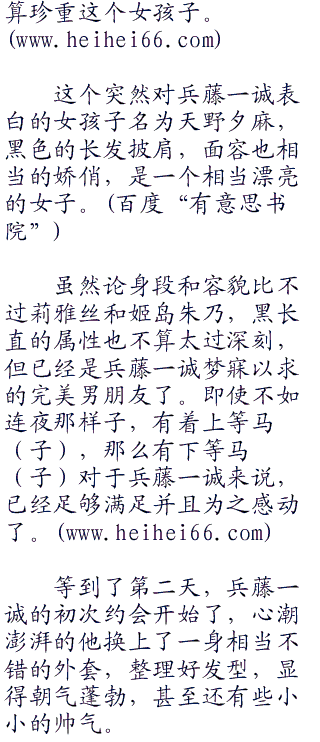 算珍重这个女孩子。
(www.heihei66.com)
这个突然对兵藤一诚表
白的女孩子名为天野夕麻，
黑色的长发披肩，面容也相
当的娇俏，是一个相当漂亮
的女子。(百度“有意思书
院”)
虽然论身段和容貌比不
过莉雅丝和姬岛朱乃，黑长
直的属性也不算太过深刻，
但已经是兵藤一诚梦寐以求
的完美男朋友了。即使不如
连夜那样子，有着上等马
（子），那么有下等马
（子）对于兵藤一诚来说，
已经足够满足并且为之感动
了。(www.heihei66.com)
等到了第二天，兵藤一
诚的初次约会开始了，心潮
澎湃的他换上了一身相当不
错的外套，整理好发型，显
得朝气蓬勃，甚至还有些小
小的帅气。